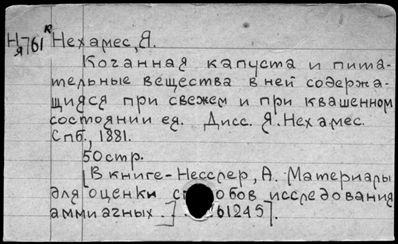 Н я 761 к Нехамес, Я.
Коганная капуста и пита-
тельные вещества в ней содержа-
щияся при свежем и при квашенном
состоянии ея. Дисс. Я. Нехамес.
Спб., 1881.
50 стр.
[В книге - Несслер, А. Материалы
для оценки способов исследования
аммиачных.] 61245].